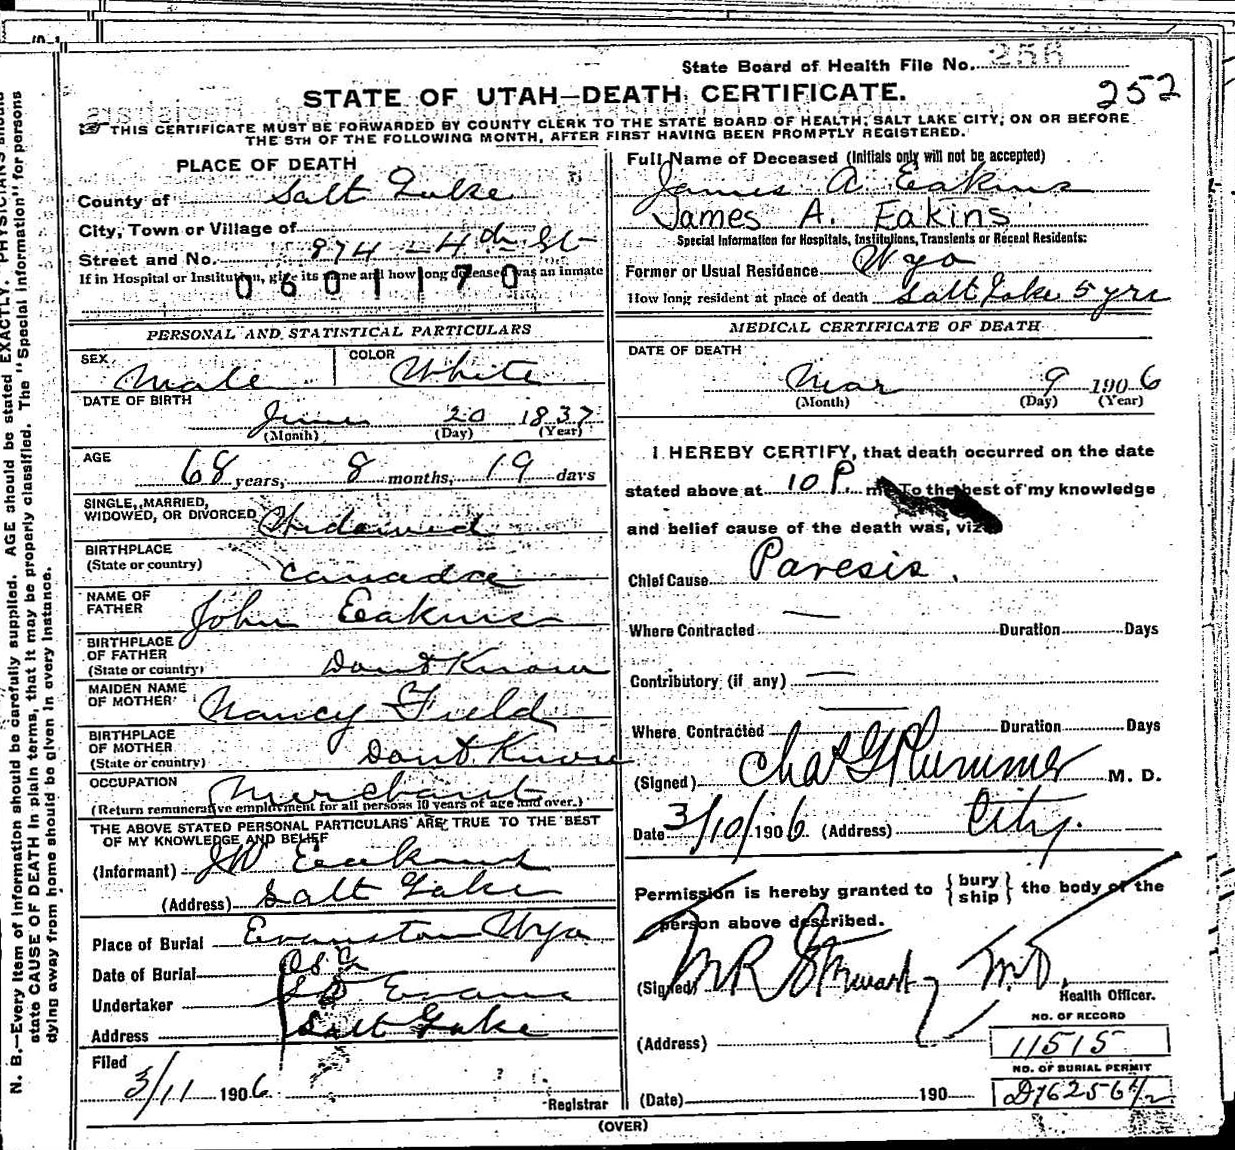 State Board of Health File No. 256
252
STATE OF UTAH—DEATH CERTIFICATE.
THIS CERTIFICATE MUST BE FORWARDED BY COUNTY CLERK TO THE STATE BOARD OF HEALTH, SALT LAKE CITY, ON OR BEFORE
THE 5TH OF THE FOLLOWING MONTH, AFTER FIRST HAVING BEEN PROMPTLY REGISTERED.
PLACE OF DEATH
County of Salt Lake
City, Town or Village of
Street and No. 974 - 4th St
If in Hospital or Institution, give its name and how long deceased was an inmate
0601170
PERSONAL AND STATISTICAL PARTICULARS
SEX Male COLOR White
DATE OF BIRTH
June 20 1837
(Month) (Day) (Year)
AGE 68 years, 8 months, 19 days
SINGLE, MARRIED,
WIDOWED, OR DIVORCED Widowed
BIRTHPLACE
(State or country) Canada
NAME OF
FATHER John Eakins
BIRTHPLACE
OF FATHER
(State or country) Dont Know
MAIDEN NAME
OF MOTHER Nancy Field
BIRTHPLACE
OF MOTHER
(State or country) Dont Know
OCCUPATION Merchant
(Return remunerative employment for all persons 10 years of age and over.)
THE ABOVE STATED PERSONAL PARTICULARS ARE TRUE TO THE BEST
OF MY KNOWLEDGE AND BELIEF
(Informant) JW Eakins
(Address) Salt Lake
Place of Burial Evanston Wyo
Date of Burial
Undertaker Evans
Address Salt Lake
Filed
3/11 1906
Registrar
Full Name of Deceased (Initials only will not be accepted)
James A Eakins
James A. Eakins
Special Information for Hospitals, Institutions, Transients or Recent Residents:
Former or Usual Residence Wyo
How long resident at place of death Salt Lake 5 yrs
MEDICAL CERTIFICATE OF DEATH
DATE OF DEATH
Mar 9 1906
(Month) (Day) (Year)
I HEREBY CERTIFY, that death occurred on the date
stated above at 10 P. m. To the best of my knowledge
and belief cause of the death was, viz
Chief Cause Paresis.
Where Contracted — Duration Days
Contributory (if any) —
Where Contracted — Duration Days
(Signed) Chas G Plummer M. D.
Date 3/10/1906 (Address) City.
Permission is hereby granted to {bury ship} the body of the
person above described.
(Signed) M R Stewart M.D.
Health Officer.
(Address)
(Date) 190
NO. OF RECORD
11515
NO. OF BURIAL PERMIT
D76256 1/2
(OVER)
N. B.—Every item of information should be carefully supplied. AGE should be stated EXACTLY. PHYSICIANS should
state CAUSE OF DEATH in plain terms, that it may be properly classified. The "Special Information" for persons
dying away from home should be given in every instance.